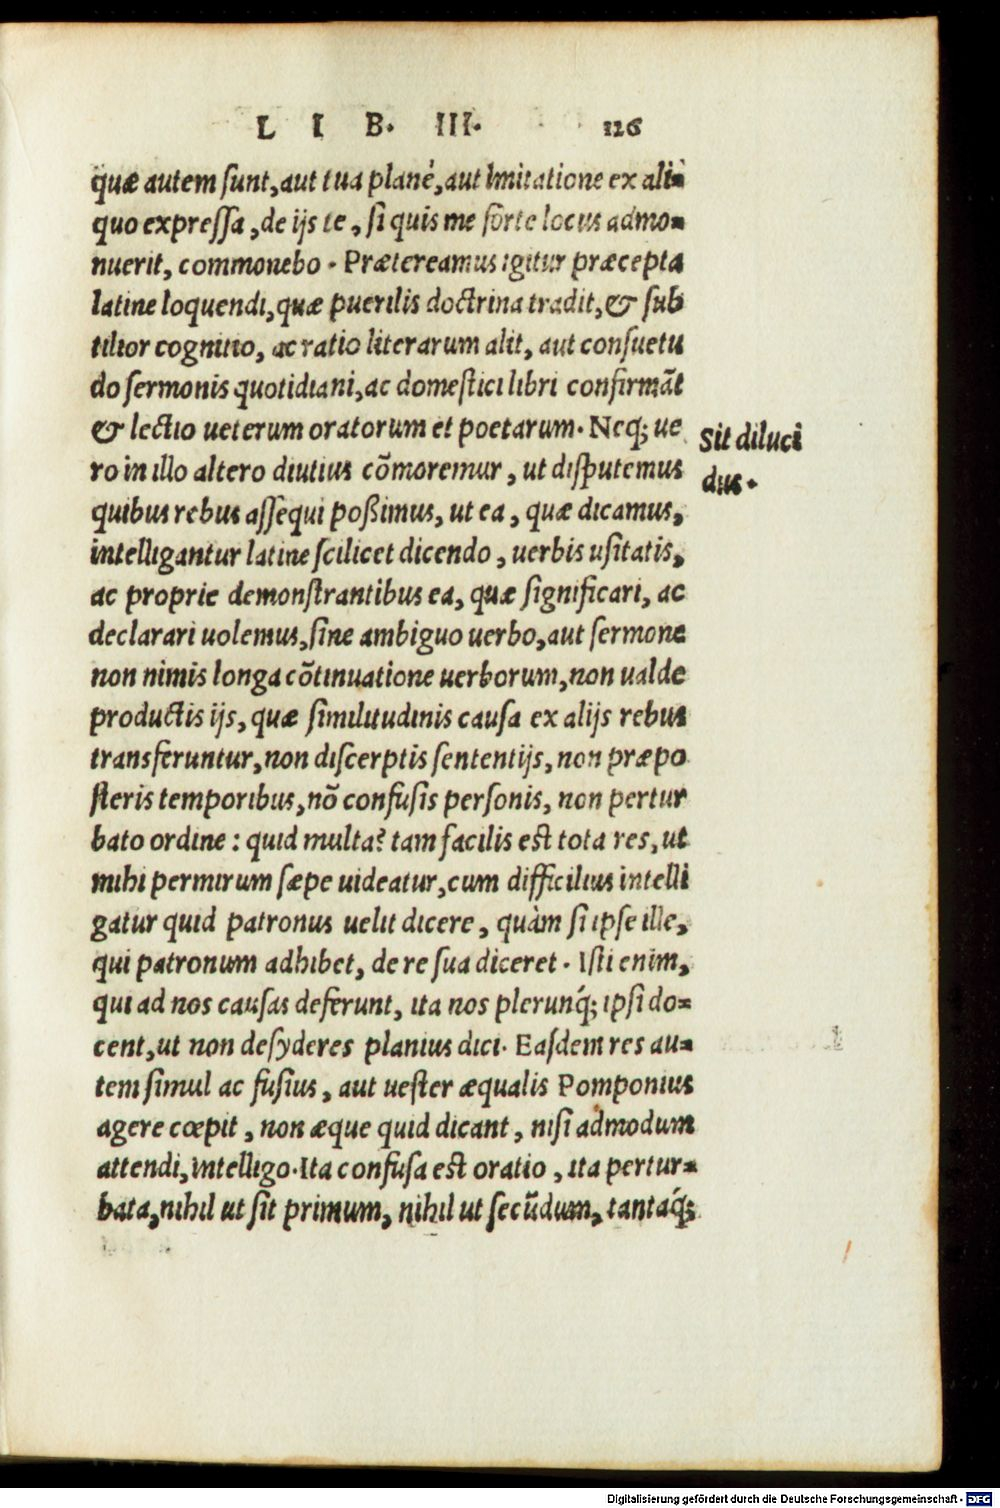 L I B. III. 126
quæ autem sunt, aut tua planè, aut imitatione ex ali=
quo expressa, de ijs te, si quis me forte locus admo=
nuerit, commonebo. Prætereamus igitur præcepta
latine loquendi, quæ puerilis doctrina tradit, & sub
tilior cognitio, ac ratio literarum alit, aut consuetu
do sermonis quotidiani, ac domestici libri confirmãt
& lectio ueterum oratorum et poetarum. Neq; ue
ro in illo altero diutius cõmoremur, ut disputemus
Sit diluci
dus.
quibus rebus assequi poßimus, ut ea, quæ dicamus,
intelligantur latine scilicet dicendo, uerbis usitatis,
ac proprie demonstrantibus ea, quæ significari, ac
declarari uolemus, sine ambiguo uerbo, aut sermone
non nimis longa cõtinuatione uerborum, non ualde
productis ijs, quæ similitudinis causa ex alijs rebus
transferuntur, non discerptis sententijs, non præpo
steris temporibus, nõ confusis personis, non pertur
bato ordine: quid multa? tam facilis est tota res, ut
mihi permirum sæpe uideatur, cum difficilius intelli
gatur quid patronus uelit dicere, quàm si ipse ille,
qui patronum adhibet, de re sua diceret. Isti enim,
qui ad nos causas deferunt, ita nos plerunq́; ipsi do=
cent, ut non desyderes planius dici. Easdem res au=
tem simul ac fusius, aut uester æqualis Pomponius
agere cœpit, non æque quid dicant, nisi admodum
attendi, intelligo. Ita confusa est oratio, ita pertur=
bata, nihil ut sit primum, nihil ut secũdum, tantaq́;
Digitalisierung gefördert durch die Deutsche Forschungsgemeinschaft - DFG